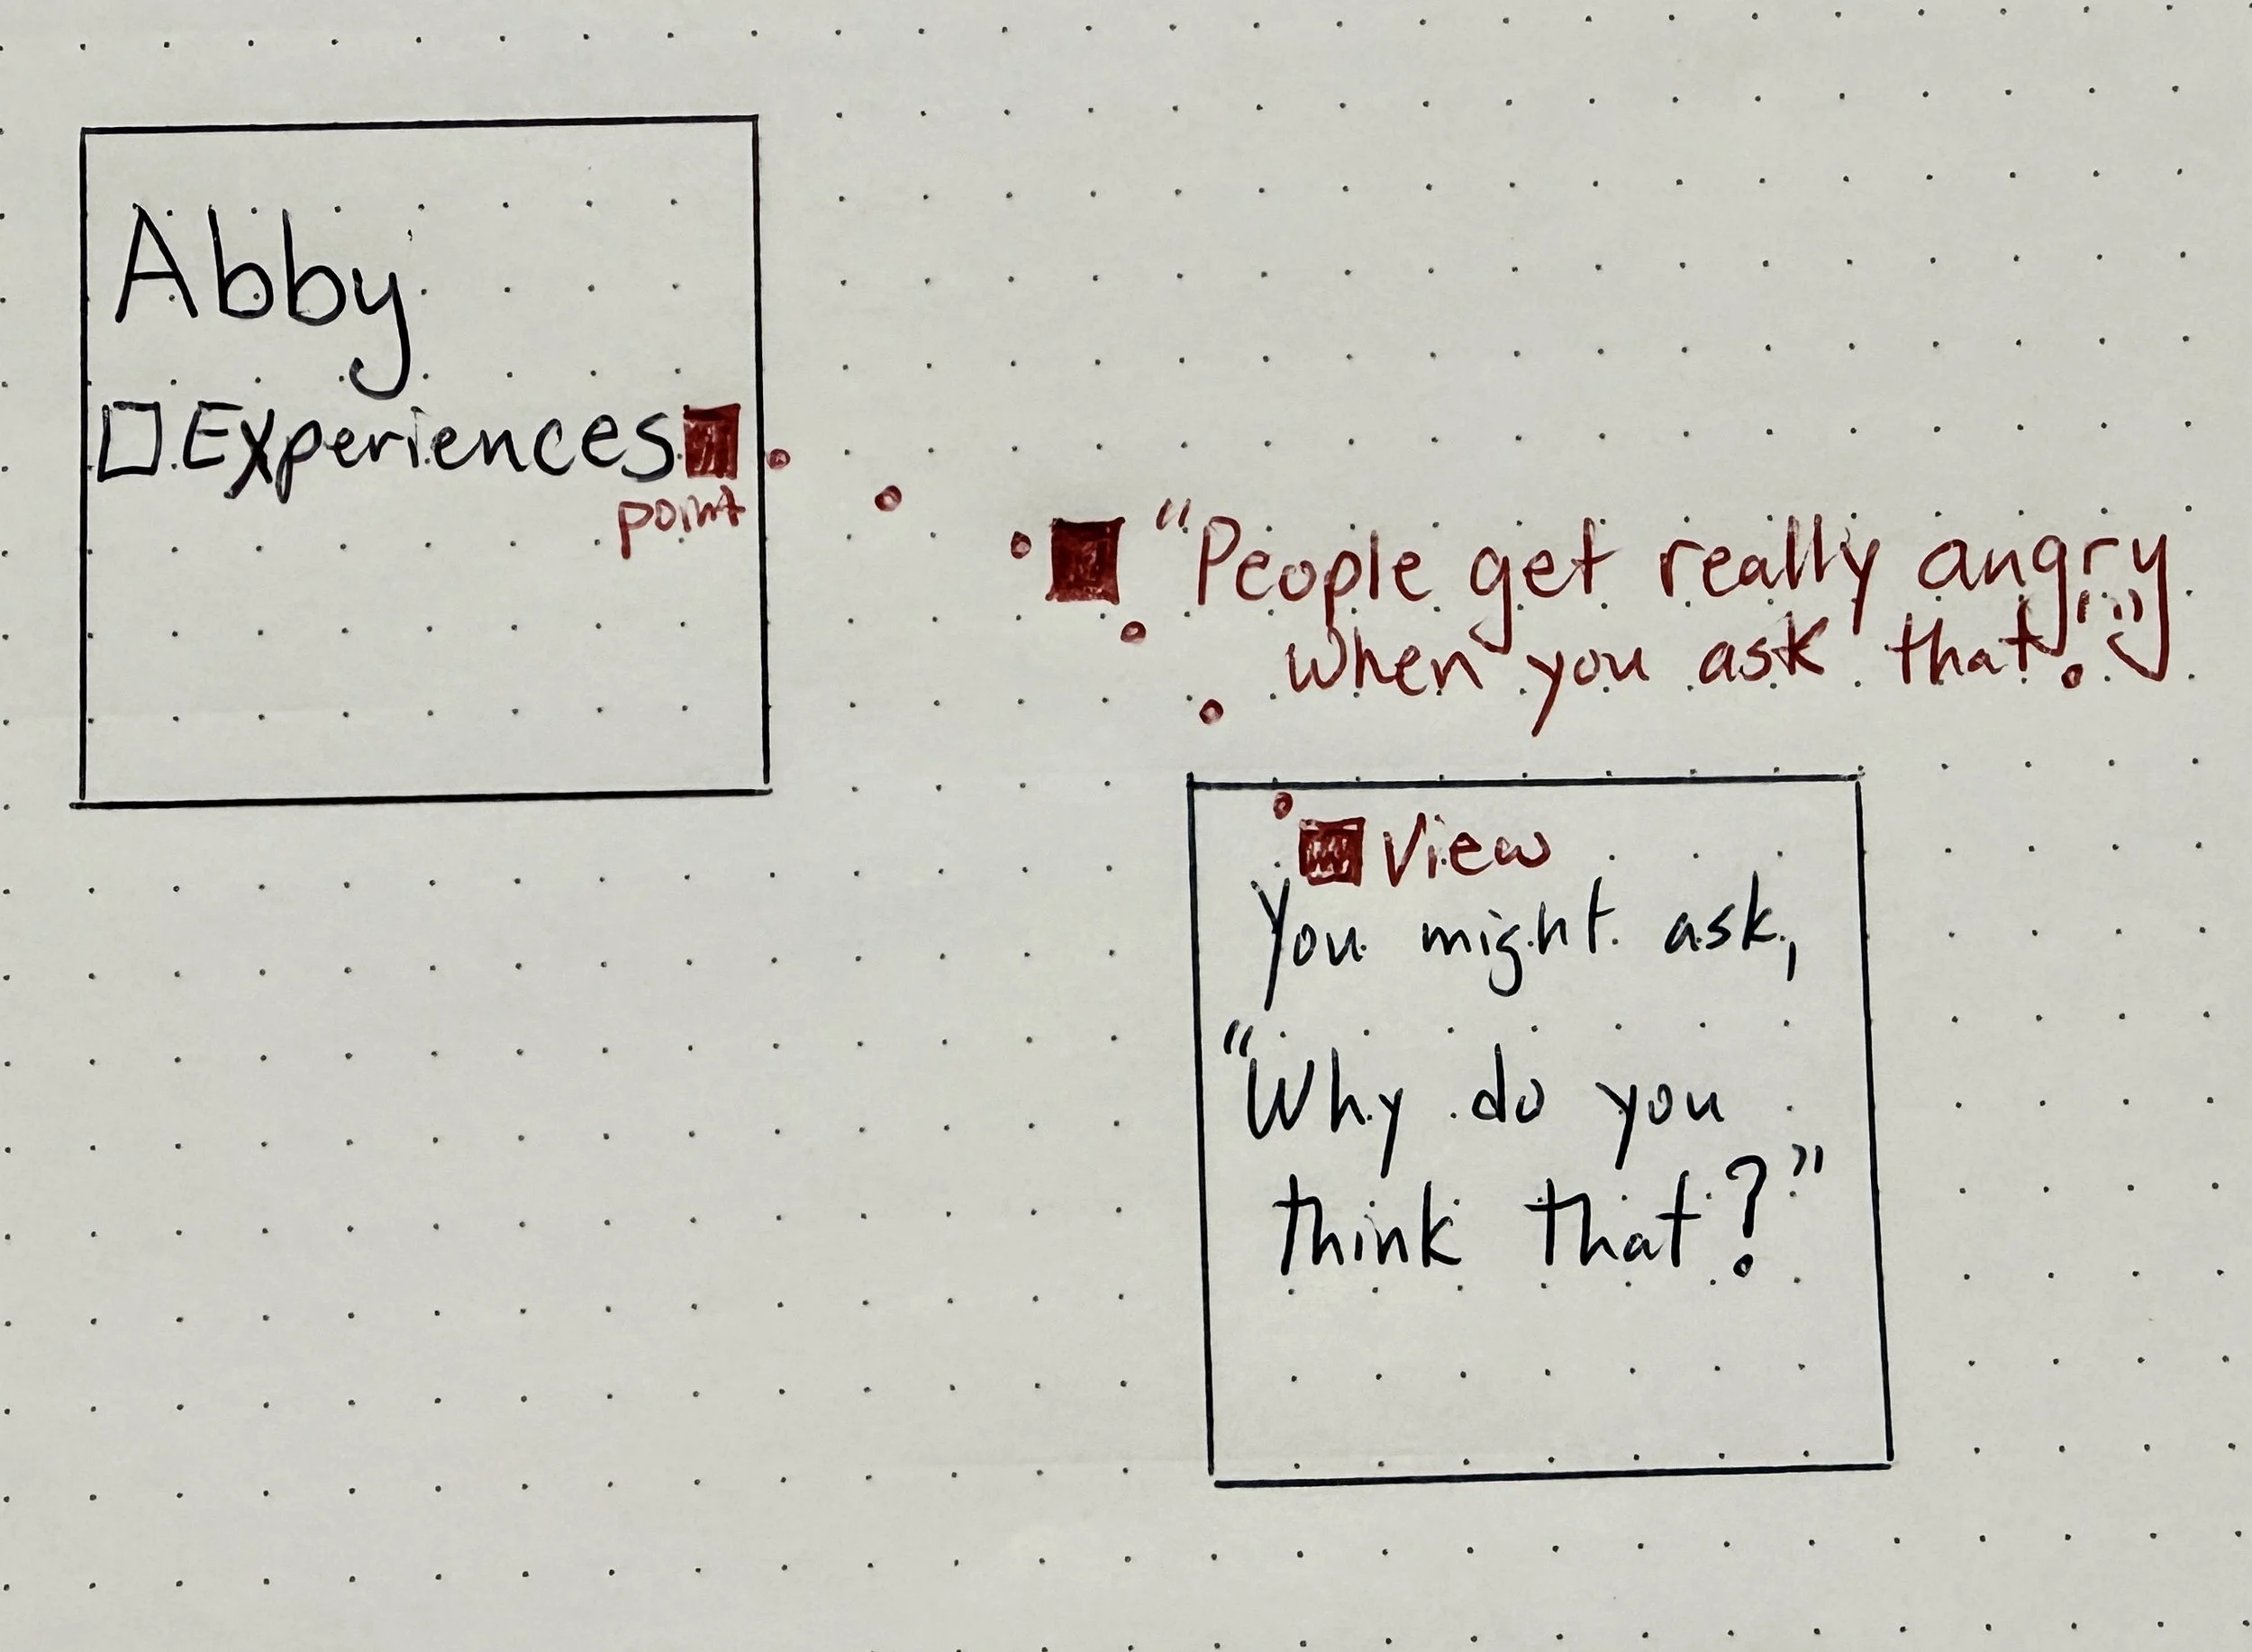 Abby
Experiences
point
"People get really angry
when you ask that."
View
You might ask,
"Why do you
think that?"